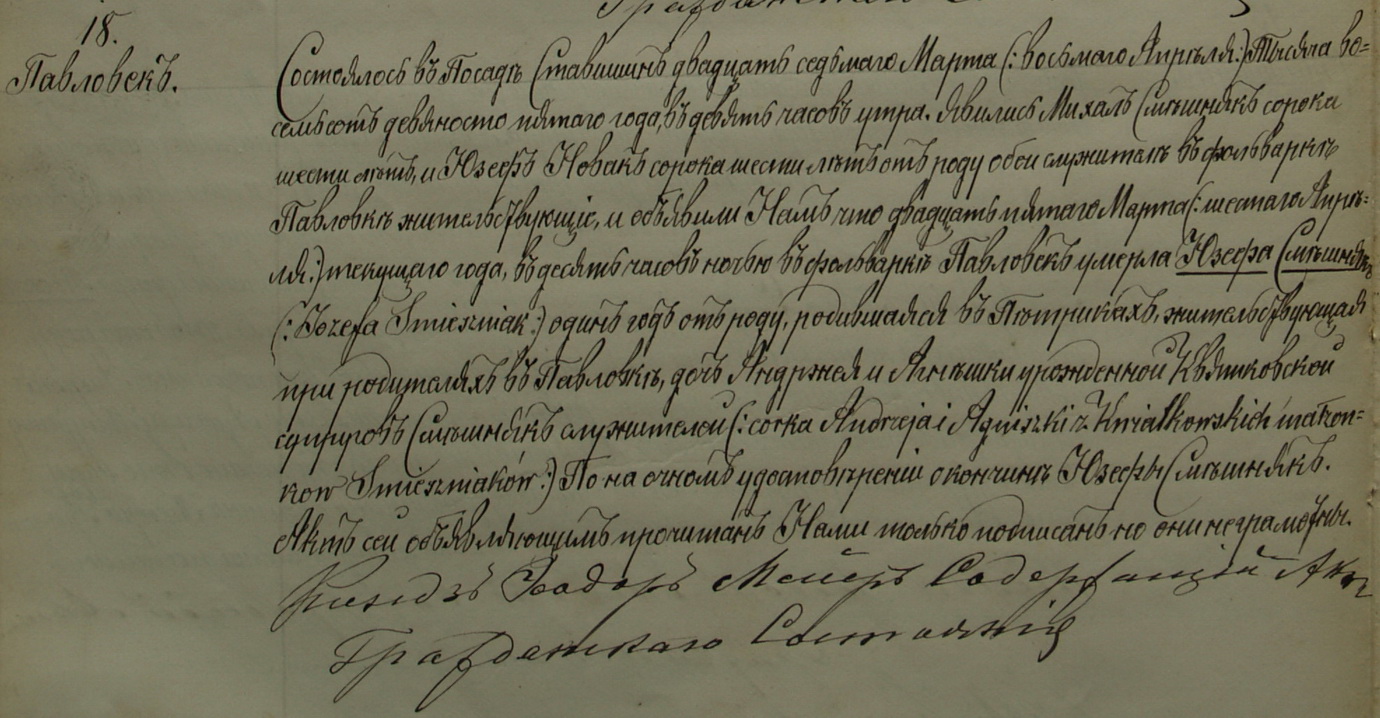 18.
Павловекъ.
Состоялось въ Посадѣ Ставишинъ двадцать седьмаго Марта (: восьмаго Апрѣля :) Тысяча во=
семьсотъ девяносто пятаго года, въ девять часовъ утра. Явились Михалъ Смѣшнякъ сорока
шести лѣтъ, и Юзефъ Новакъ сорока шести лѣтъ отъ роду обои служителѣ въ фольваркѣ
Павловкѣ жительствующіе, и объявили Намъ что двадцать пятаго Марта (: шестаго Апрѣ=
ля :) текущаго года, въ десять часовъ ночью въ фольваркѣ Павловекъ умерла Юзефа Смѣшнякъ
(: Jozefa Smieszniak :) одинъ годъ отъ роду, родившаяся въ Пѣтрикахъ, жительствующая
при родителяхъ въ Павловкѣ, дочь Андржея и Агнѣшки урожденной Квятковской
супруговъ Смѣшнякъ служителей (: corka Andrzeja i Agniszki z Kwiatkowskich małżon=
ków Smieszniaków :) По на очномъ удостовѣреніи о кончинѣ Юзефы Смѣшнякъ.
Актъ сей объявляющимъ прочитанъ Нами только подписанъ но они неграмотны.
Ксендзъ Теодоръ Мейеръ Содержащій Акты
Гражданскаго Состоянія